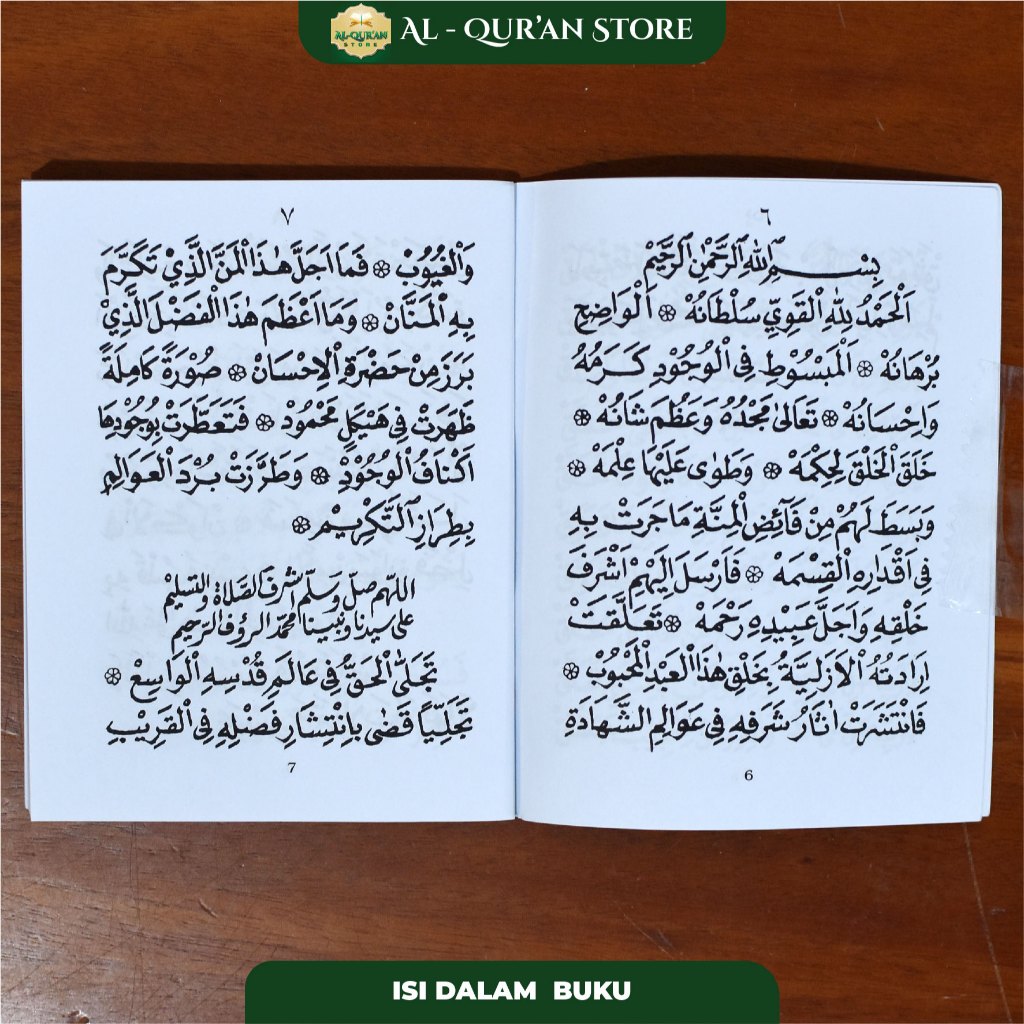 AL-QUR'AN
STORE
AL - QUR'AN STORE
٦
بِسْمِ اللهِ الرَّحْمٰنِ الرَّحِيْمِ
اَلْحَمْدُ لِلّٰهِ الْقَوِيِّ سُلْطَانُهْ ۞ اَلْوَاضِحِ
بُرْهَانُهْ ۞ اَلْمَبْسُوْطِ فِى الْوُجُوْدِ كَرَمُهُ
وَاِحْسَانُهْ ۞ تَعَالٰى مَجْدُهُ وَعَظُمَ شَانُهْ ۞
خَلَقَ الْخَلْقَ لِحِكْمَهْ ۞ وَطَوٰى عَلَيْهَا عِلْمَهْ ۞
وَبَسَطَ لَهُمْ مِنْ فَآئِضِ الْمِنَّةِ مَا جَرَتْ بِهِ
فِى اَقْدَارِهِ الْقِسْمَهْ ۞ فَاَرْسَلَ اِلَيْهِمْ اَشْرَفَ
خَلْقِهِ وَاَجَلَّ عَبِيْدِهِ رَحْمَهْ ۞ تَعَلَّقَتْ
اِرَادَتُهُ الْاَزَلِيَّةُ بِخَلْقِ هٰذَا الْعَبْدِ الْمَحْبُوْبْ ۞
فَانْتَشَرَتْ اٰثَارُ شَرَفِهِ فِى عَوَالِمِ الشَّهَادَةِ
6
٧
وَالْغُيُوْبْ ۞ فَمَا اَجَلَّ هٰذَا الْمَنَّ الَّذِيْ تَكَرَّمَ
بِهِ الْمَنَّانْ ۞ وَمَا اَعْظَمَ هٰذَا الْفَضْلَ الَّذِيْ
بَرَزَ مِنْ حَضْرَةِ الْاِحْسَانْ ۞ صُوْرَةً كَامِلَةً
ظَهَرَتْ فِى هَيْكَلٍ مَحْمُوْدْ ۞ فَتَعَطَّرَتْ بِوُجُوْدِهَا
اَكْنَافُ الْوُجُوْدْ ۞ وَطَرَّزَتْ بُرْدَ الْعَوَالِمِ
بِطِرَازِ التَّكْرِيْمِ ۞
اللهم صل وسلم اشرف الصلاة والتسليم
على سيدنا ونبينا محمد الرؤف الرحيم
تَجَلَّى الْحَقُّ فِى عَالَمِ قُدْسِهِ الْوَاسِعْ ۞
تَجَلِّيًا قَضٰى بِانْتِشَارِ فَضْلِهِ فِى الْقَرِيْبِ
7
ISI DALAM BUKU